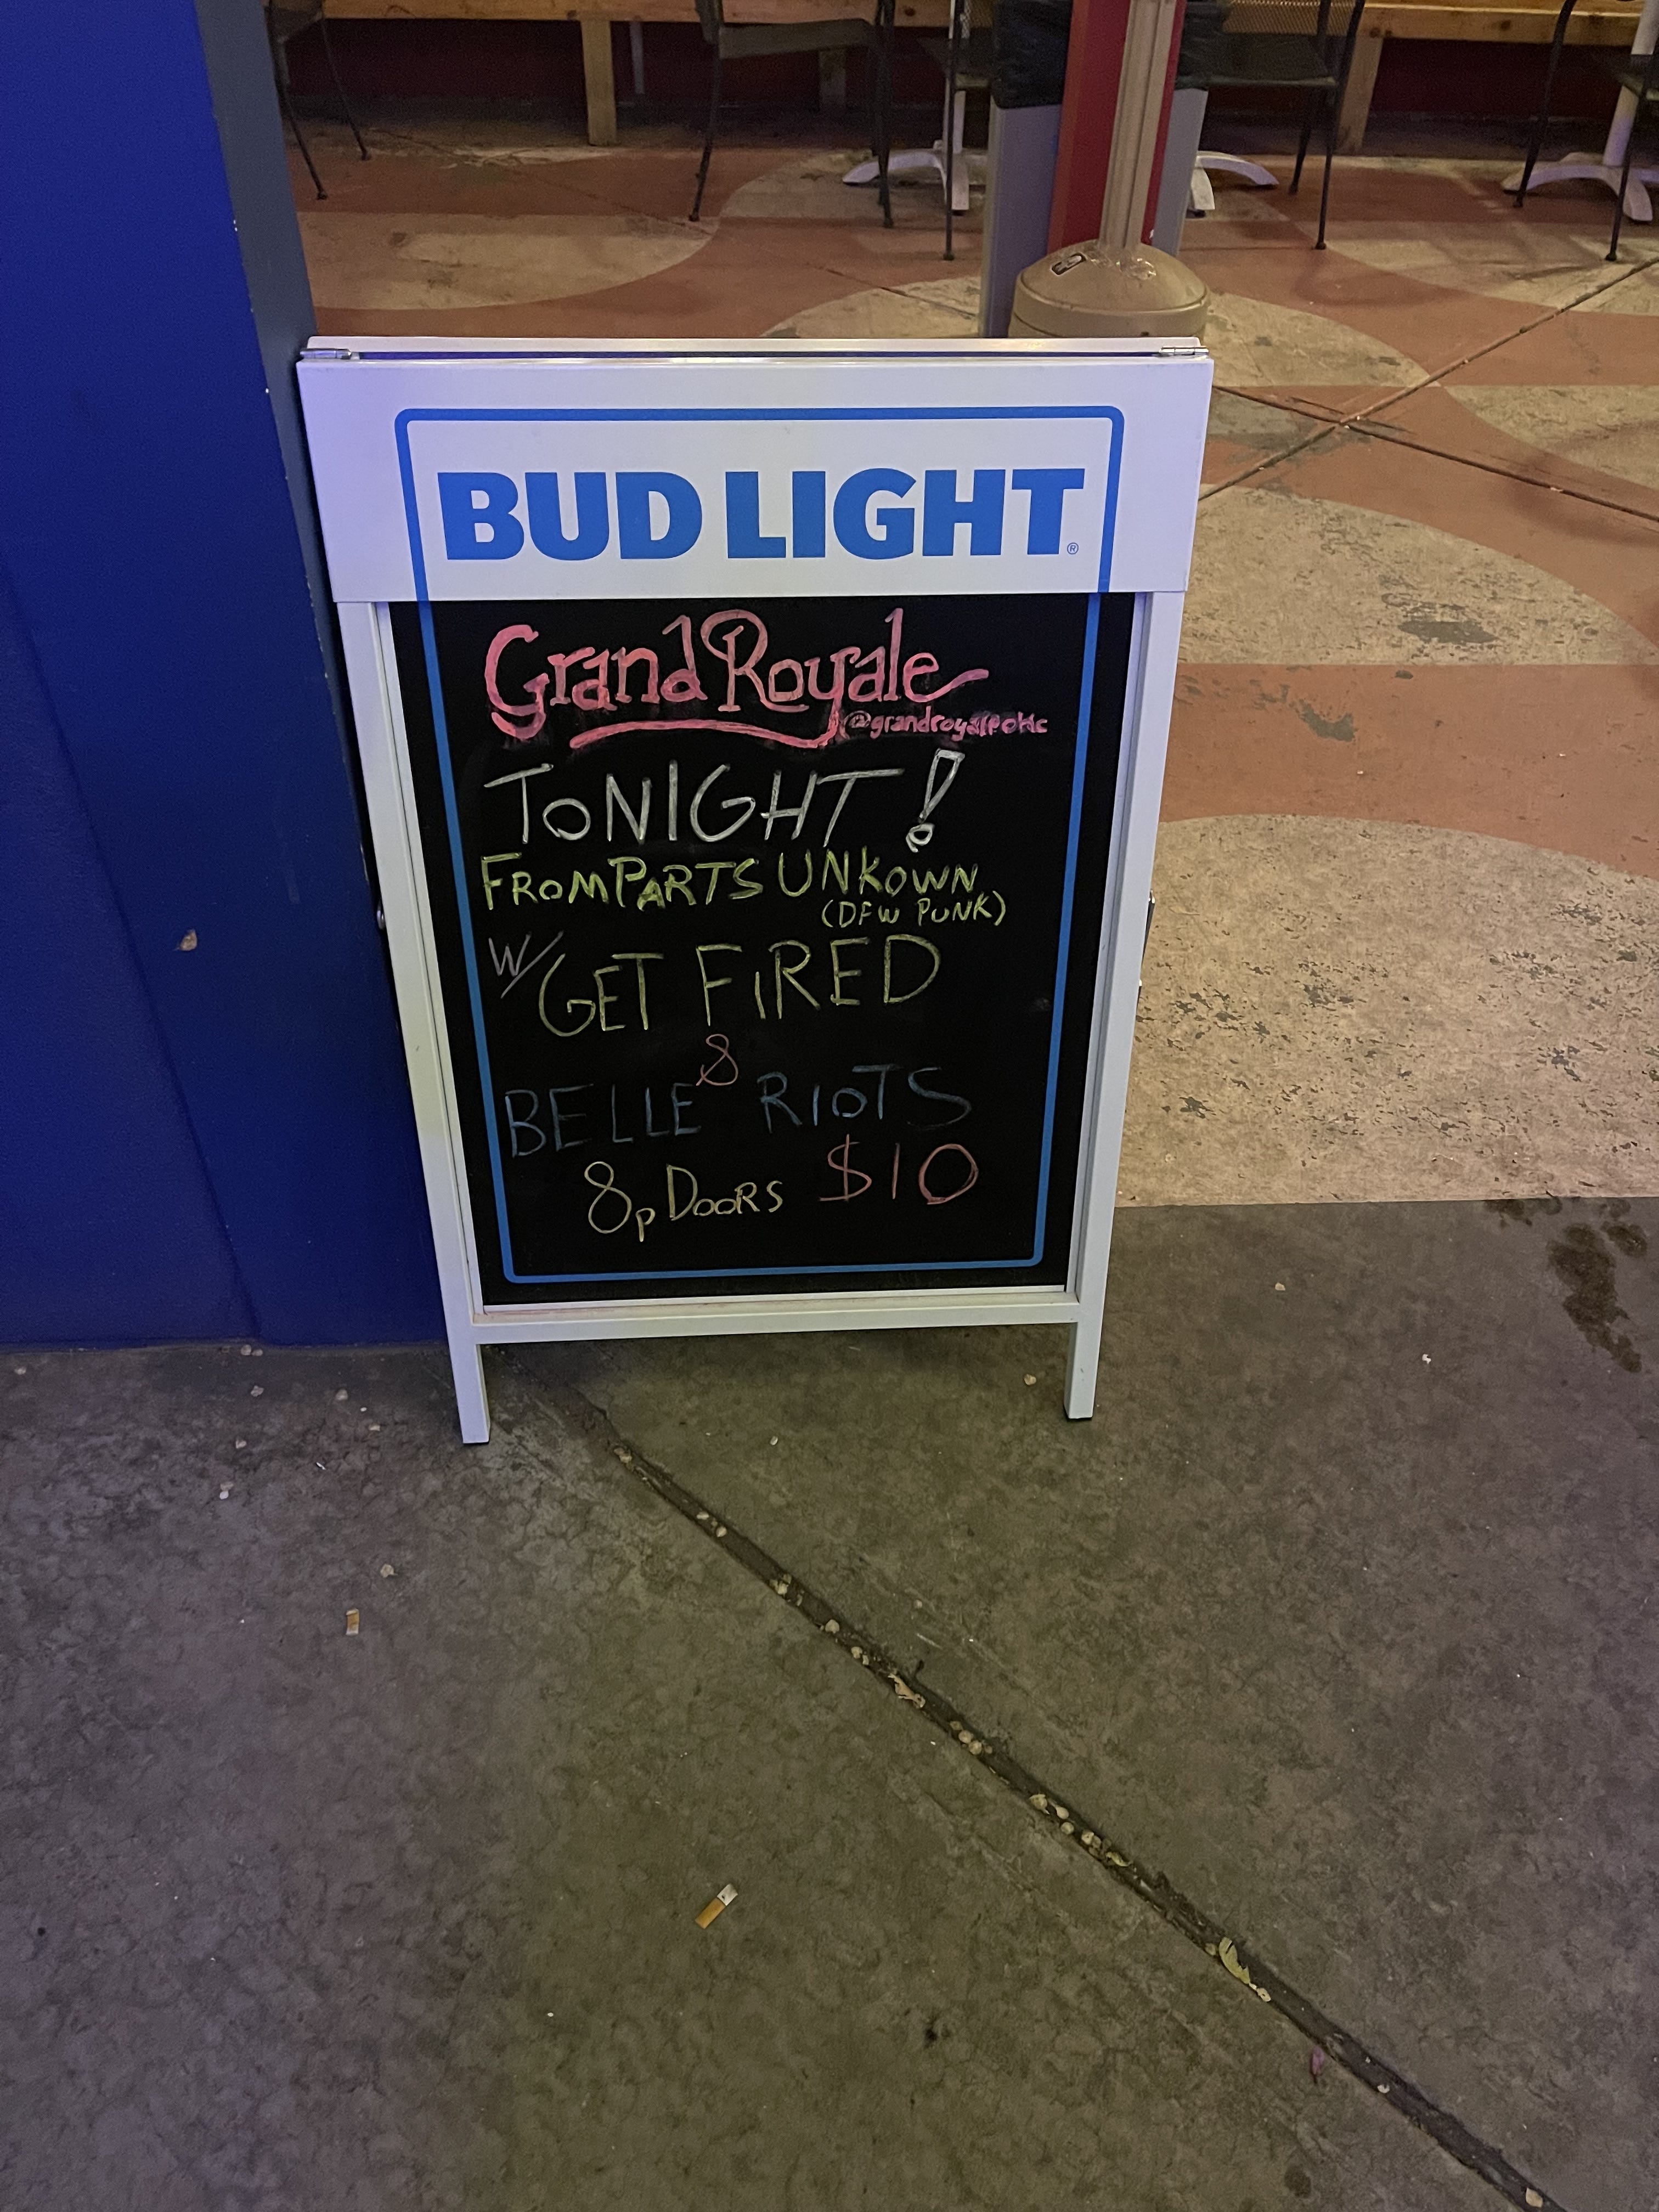 BUD LIGHT®
Grand Royale
TONIGHT!
FROM PARTS UNKOWN
(DFW PUNK)
W/ GET FIRED
&
BELLE RIOTS
8p DOORS $10